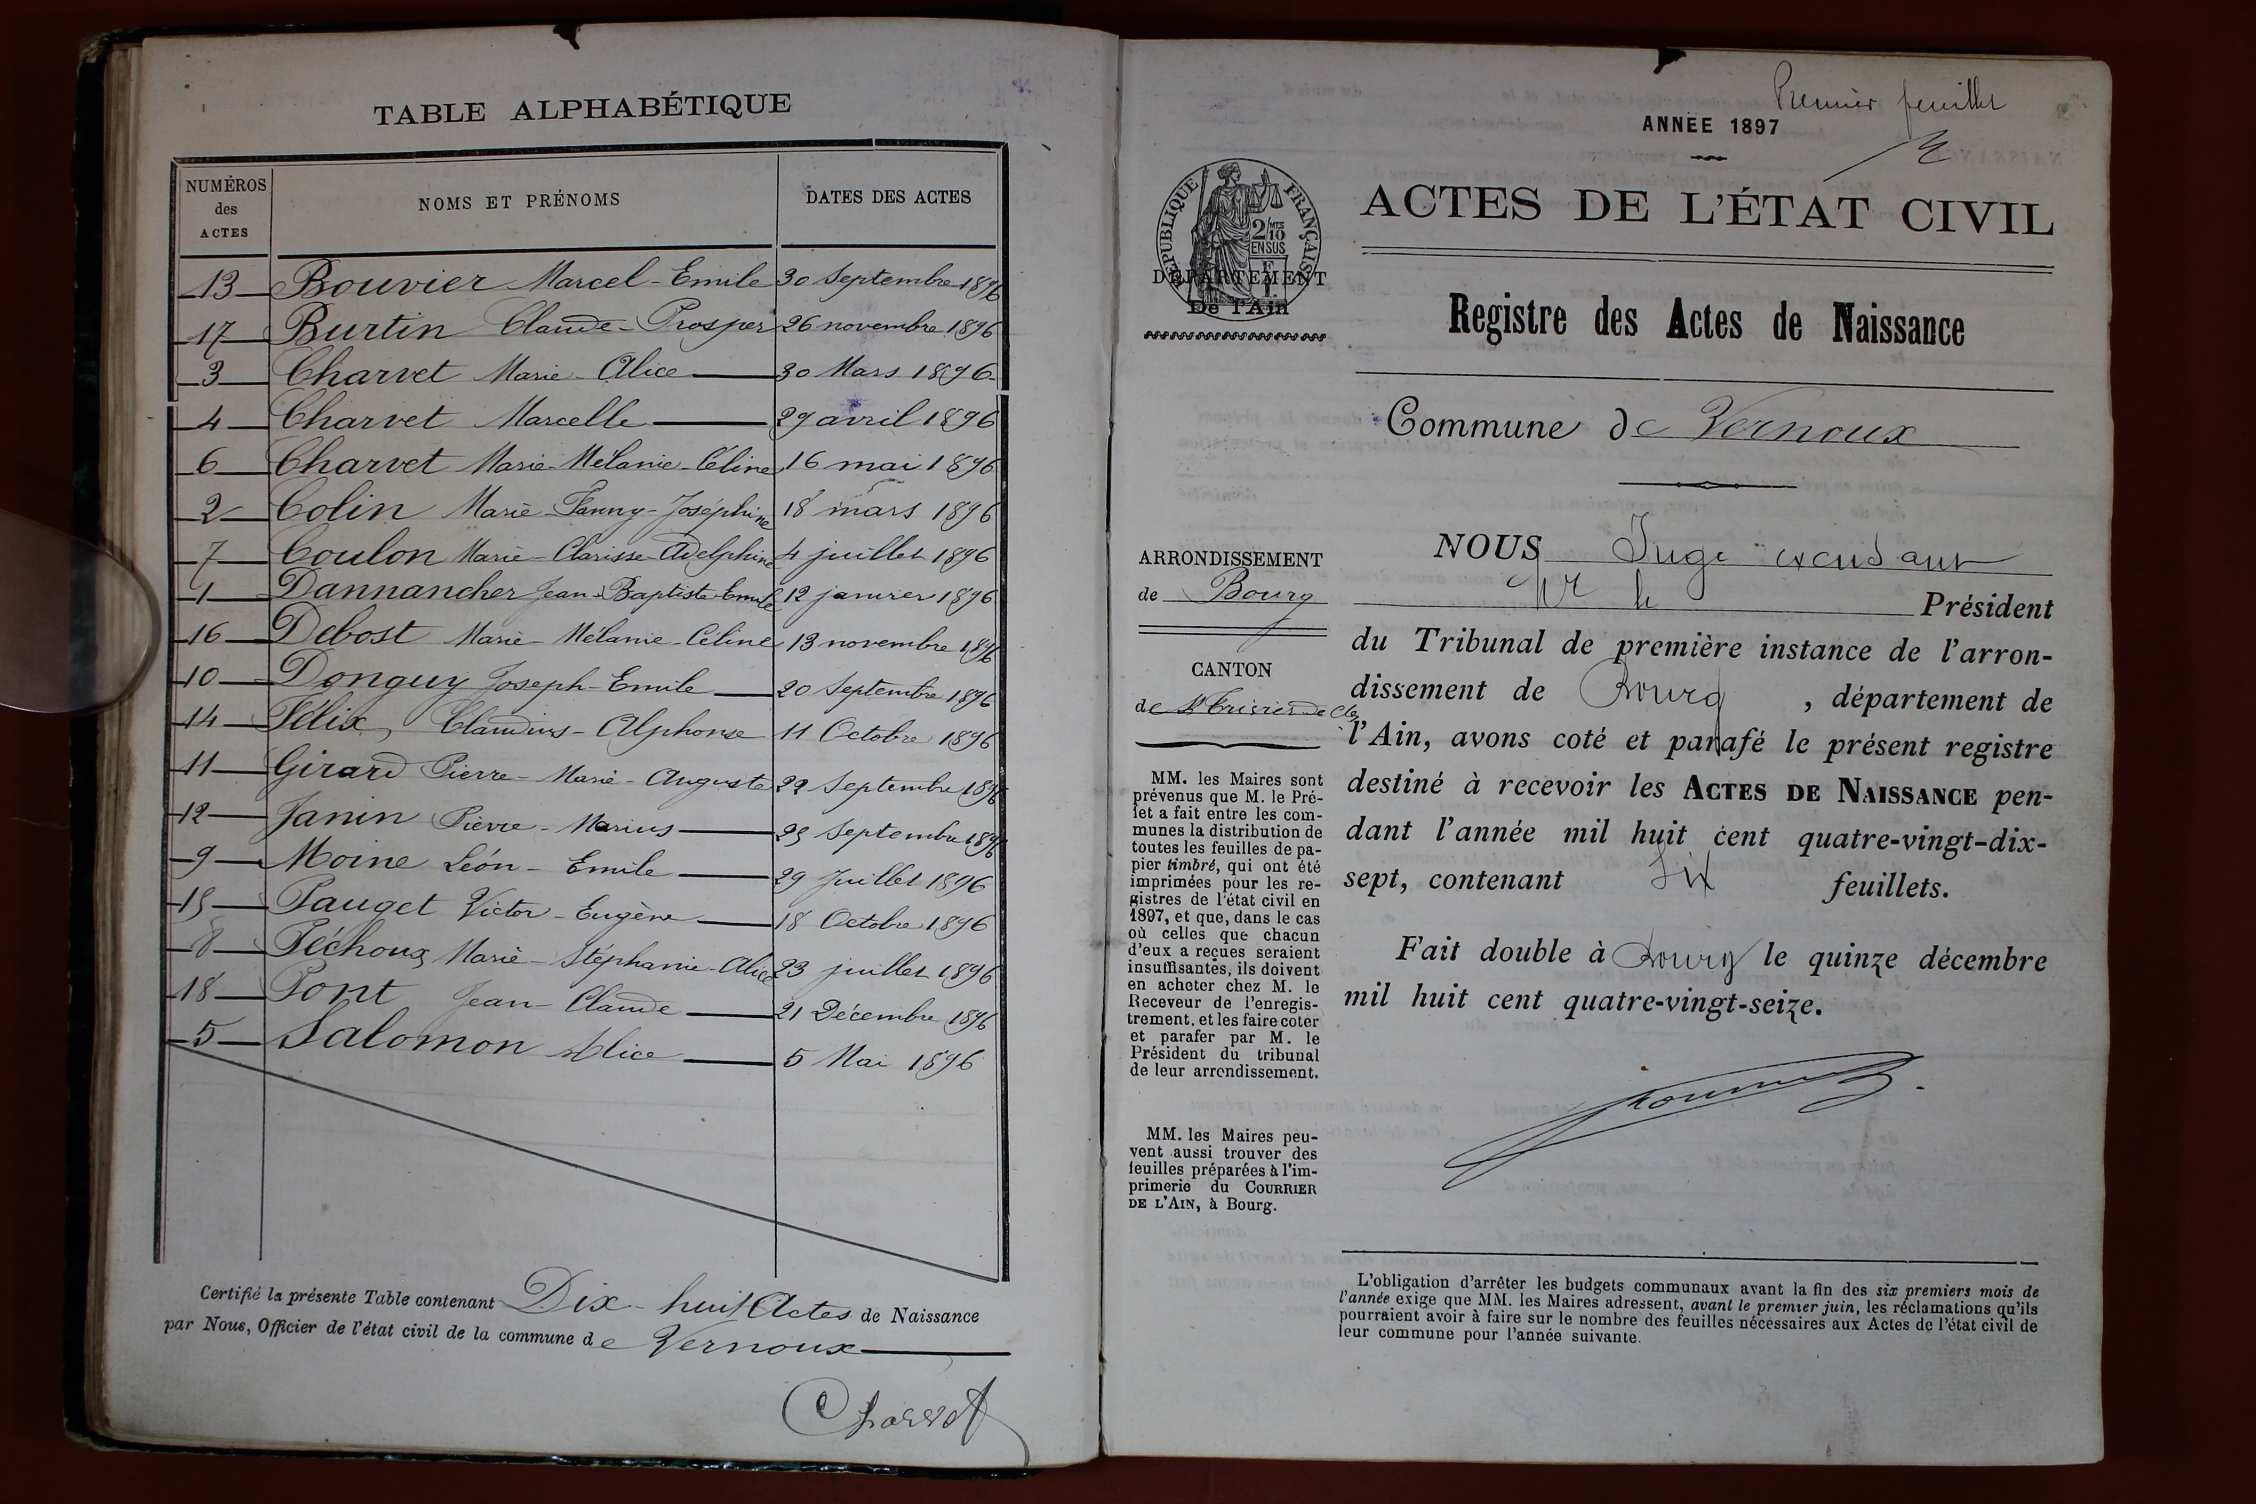 TABLE ALPHABÉTIQUE
NUMÉROS des ACTES NOMS ET PRÉNOMS DATES DES ACTES
13 Bouvier Marcel-Emile 30 Septembre 1896
17 Burtin Claude-Prosper 26 novembre 1896
3 Charvet Marie Alice 30 Mars 1896
4 Charvet Marcelle 29 avril 1896
6 Charvet Marie-Mélanie-Céline 16 mai 1896
2 Colin Marie-Fanny-Joséphine 18 mars 1896
7 Coulon Marie-Clarisse-Adelphine 4 juillet 1896
1 Dannancher Jean-Baptiste-Emile 12 janvier 1896
16 Debost Marie-Mélanie-Céline 13 novembre 1896
10 Donguy Joseph-Emile 20 Septembre 1896
14 Félix, Claudius-Alphonse 11 Octobre 1896
11 Girard Pierre-Marie-Auguste 22 Septembre 1896
12 Janin Pierre-Marius 25 Septembre 1896
9 Moine Léon-Emile 29 Juillet 1896
15 Pauget Victor-Eugène 18 Octobre 1896
8 Péchoux Marie-Stéphanie-Alice 23 juillet 1896
18 Pont Jean-Claude 21 Décembre 1896
5 Salomon Alice 5 Mai 1896
Certifié la présente Table contenant Dix-huit Actes de Naissance
par Nous, Officier de l'état civil de la commune de Vernoux
Charvet
Premier feuillet
ANNÉE 1897
RÉPUBLIQUE FRANÇAISE
2/10
EN SUS
DÉPARTEMENT
De l'Ain
ACTES DE L'ÉTAT CIVIL
Registre des Actes de Naissance
Commune de Vernoux
ARRONDISSEMENT
de Bourg
CANTON
de St Trivier de
MM. les Maires sont
prévenus que M. le Pré-
fet a fait entre les com-
munes la distribution de
toutes les feuilles de pa-
pier timbré, qui ont été
imprimées pour les re-
gistres de l'état civil en
1897, et que, dans le cas
où celles que chacun
d'eux a reçues seraient
insuffisantes, ils doivent
en acheter chez M. le
Receveur de l'enregis-
trement, et les faire coter
et parafer par M. le
Président du tribunal
de leur arrondissement.
MM. les Maires peu-
vent aussi trouver des
feuilles préparées à l'im-
primerie du COURRIER
DE L'AIN, à Bourg.
NOUS Juge
Mr le Président
du Tribunal de première instance de l'arron-
dissement de Bourg, département de
l'Ain, avons coté et parafé le présent registre
destiné à recevoir les ACTES DE NAISSANCE pen-
dant l'année mil huit cent quatre-vingt-dix-
sept, contenant dix feuillets.
Fait double à Bourg le quinze décembre
mil huit cent quatre-vingt-seize.
L'obligation d'arrêter les budgets communaux avant la fin des six premiers mois de
l'année exige que MM. les Maires adressent, avant le premier juin, les réclamations qu'ils
pourraient avoir à faire sur le nombre des feuilles nécessaires aux Actes de l'état civil de
leur commune pour l'année suivante.